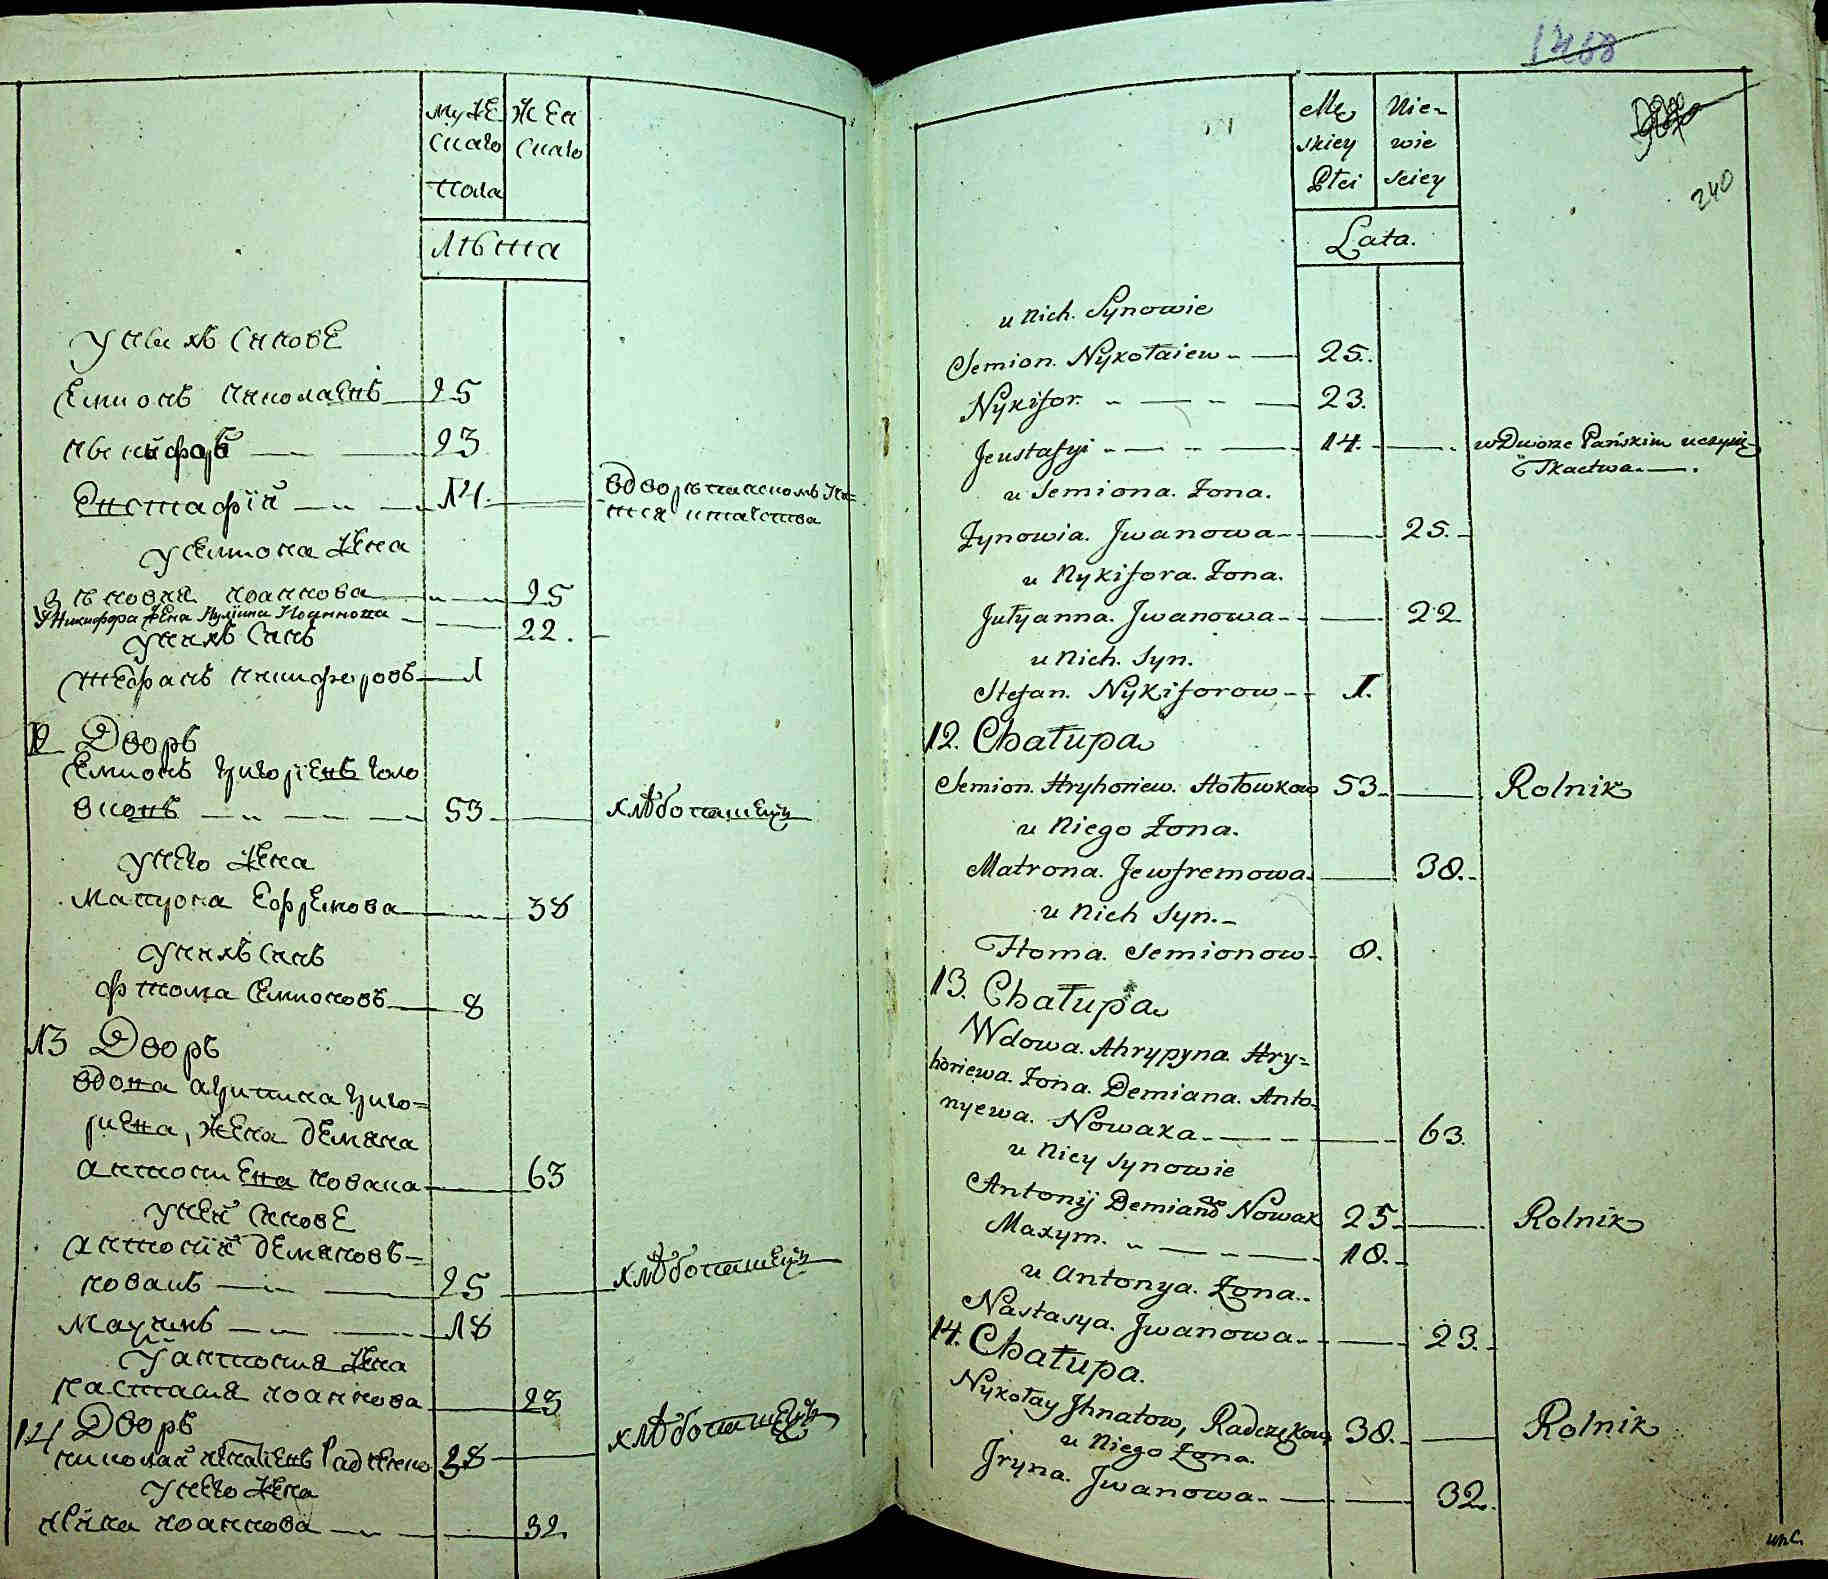 Муже Жен
скаго скаго
пола
Лѣта
У нихъ сыновѣ
Симионъ николаевъ 25
никифоръ 23
Евстафій 14. в дворѣ панскомъ
У Симиона жена
Зѣновия иоаннова 25
У Никифора жена Иулiяна Иоаннова 22.
У нихъ сынъ
Стефанъ никифоровъ 1
12 Дворъ
Симионъ григориевъ голо
вковъ 53 хлѣбопашецъ
У него жена
Матрона Ефремова 38
У нихъ сынъ
Фтома Симионовъ 8
13 Дворъ
вдова агрипина григо=
риева, жена демяна
антониева новака 63
У ней сыновѣ
антоній демяновъ=
новакъ 25 хлѣбопашецъ
Маѯимъ 18
У антония жена
настасия иоаннова 23
14 Дворъ
николай игнатiевъ Радченко 38 хлѣбопашецъ
У него жена
ирина иоаннова 32.
1468
240
Mę Nie-
skiey wie
Płci sciey
Lata.
u Nich. Synowie
Semion. Nykołaiew 25.
Nykifor. 23.
Jeustafyi 14. w Dworze Pańskim uczy się
Tkactwa.
u Semiona. Żona.
Zynowia. Jwanowa 25.
u Nykifora. Żona.
Julyanna. Jwanowa 22
u Nich. Syn.
Stefan. Nykiforow 1.
12. Chałupa
Semion. Hryhoriew. Hołowkow 53. Rolnik
u Niego Żona.
Matrona. Jewfremowa. 38.
u Nich Syn.
Homa. Semionow 8.
13. Chałupa
Wdowa. Ahrypyna. Hry=
horiewa. Żona. Demiana. Anto-
nyewa. Nowaka 63.
u Niey Synowie
Antonij Demianow Nowak 25 Rolnik
Maxym. 18.
u Antonya. Żona.
Nastasya. Jwanowa 23.
14. Chałupa.
Nykołay Jhnatow, Radczękow 38. Rolnik
u Niego Żona.
Jryna. Jwanowa 32.